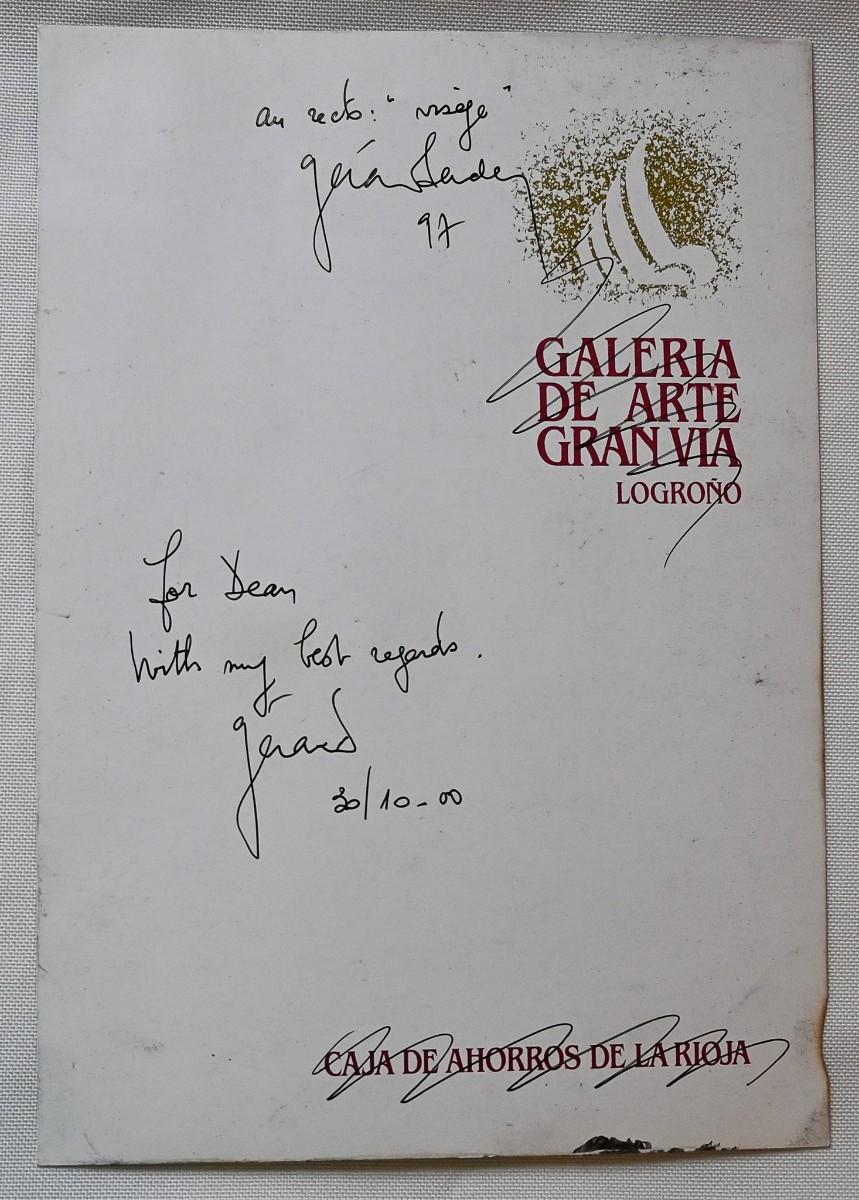 au recto: "visage"
97
GALERIA
DE ARTE
GRAN VIA
LOGROÑO
for Dean
With my best regards.
Gérard
30/10-00
CAJA DE AHORROS DE LA RIOJA